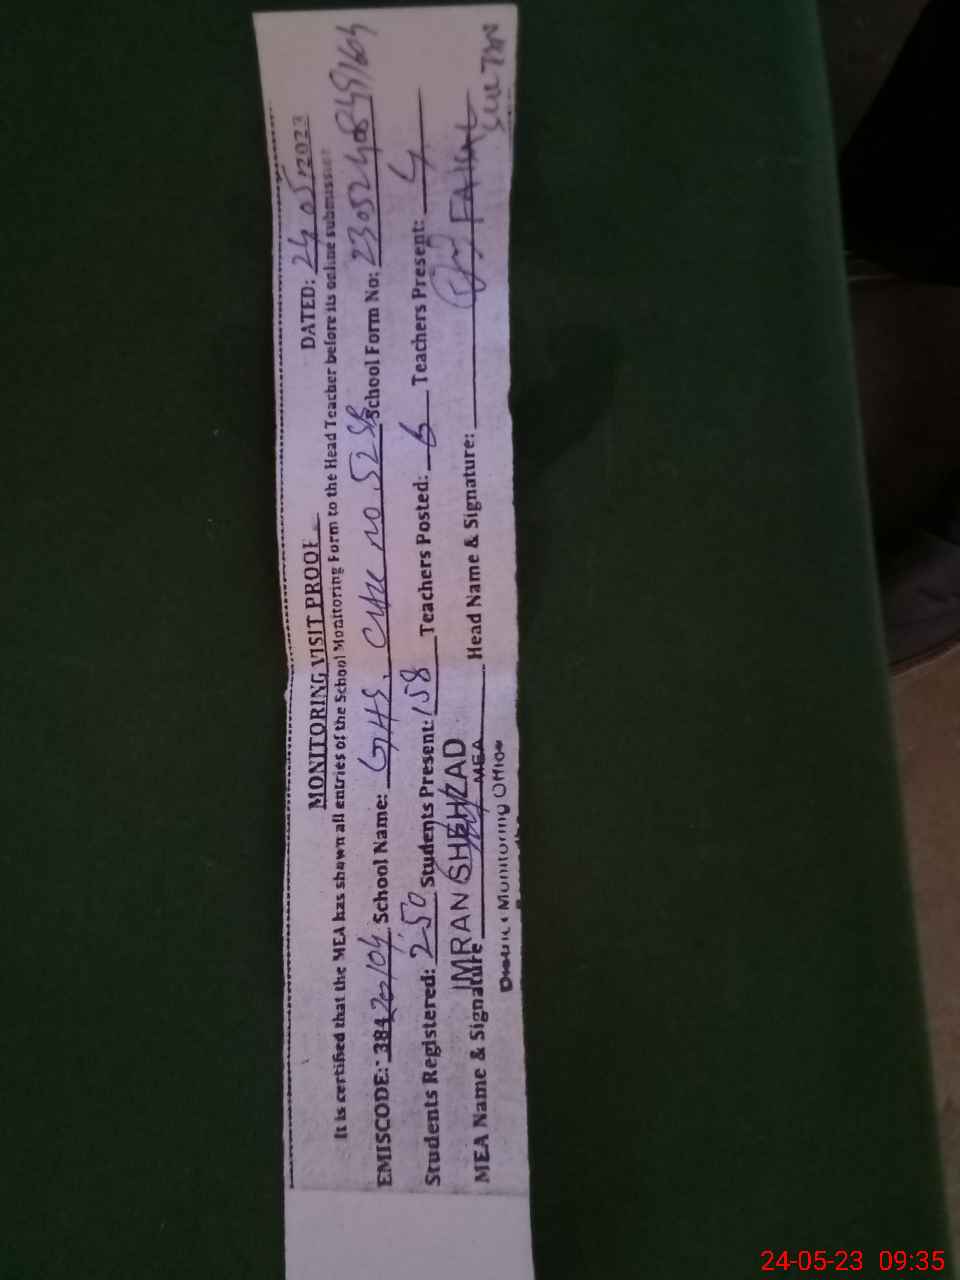 MONITORING VISIT PROOF
DATED: 24 05 2023
It is certified that the MEA has shown all entries of the School Monitoring Form to the Head Teacher before its online submission
EMISCODE: 38420104 School Name: GHS, CHK no. 52 SB School Form No:
Students Registered: 250 Students Present: 158 Teachers Posted: 6 Teachers Present: 4
IMRAN SHEHZAD
MEA Name & Signature MEA Head Name & Signature:
District Monitoring Office
24-05-23 09:35